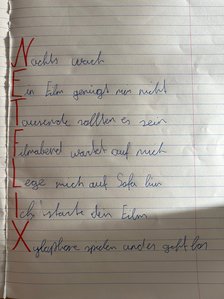 Nachts wach
Ein Film genügt mir nicht
Tausende sollten es sein
Filmabend wartet auf mich
Lege mich auf Sofa hin
Ich starte den Film
Xylophone spielen und es geht los